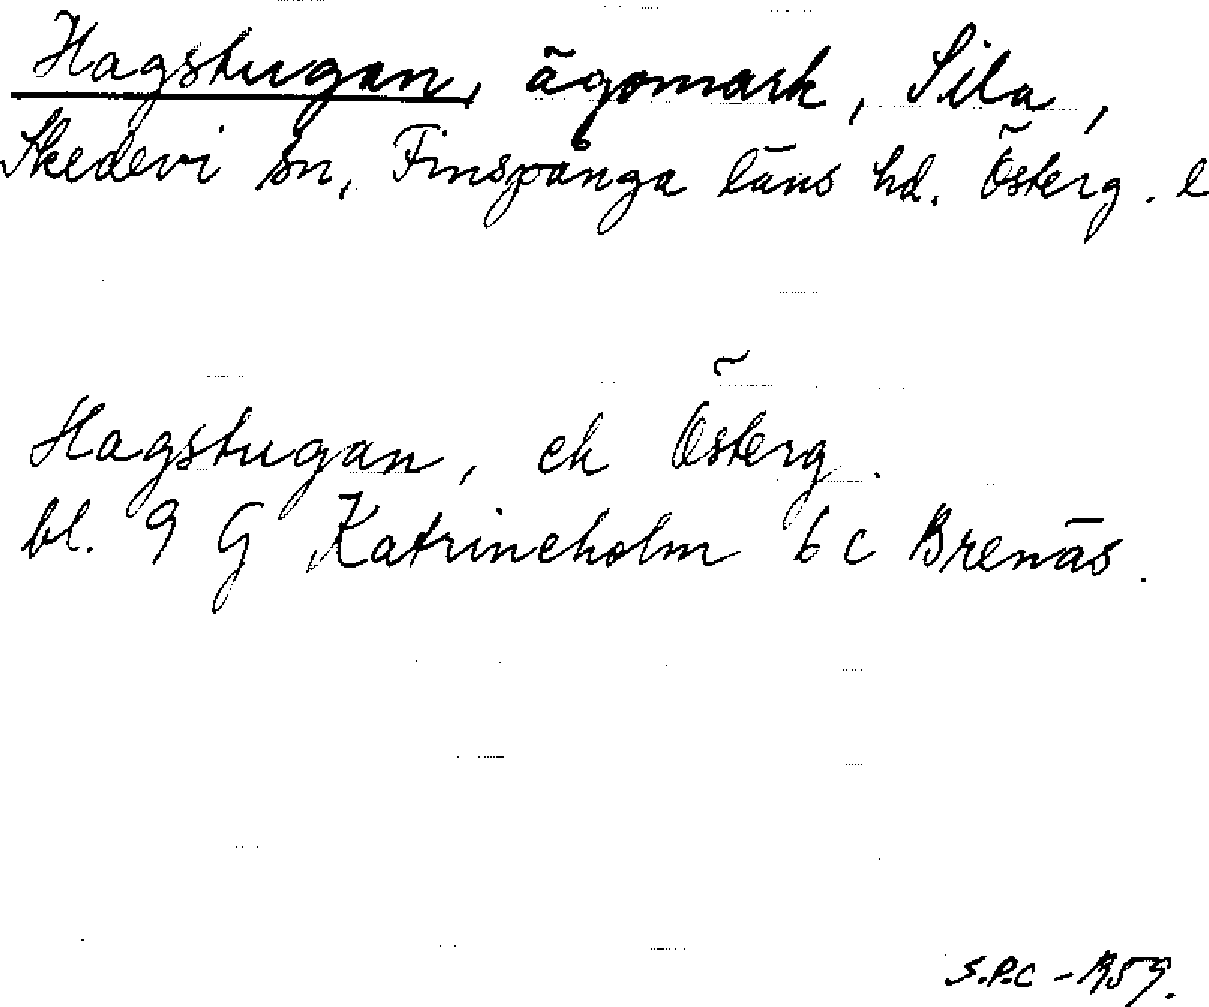 Hagstugan, ägomark, Sila,
Skedevi sn, Finspånga läns hd. Österg. l
Hagstugan, ek Österg.
bl. 9 G Katrineholm 6 c Brenäs.
S.P.C - 1959.